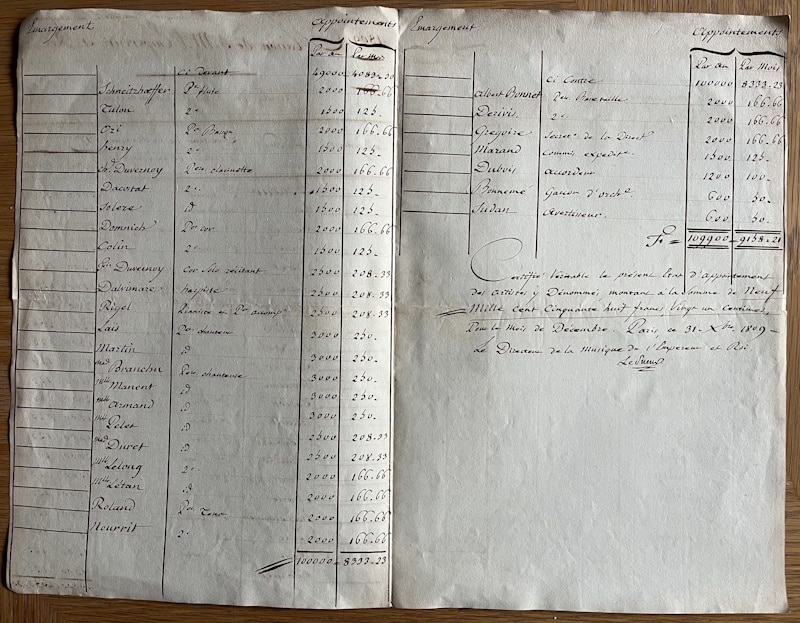 Emargement Appointements
Par an Par Mois
Ci devant 49000 4083-30
Schneitzhoeffer Pre flute 2000 166-66
Tulou 2e 1500 125-
Ozi Per Basson 2000 166-66
henry 2e 1500 125-
Ch. Duvernoy Pere clarinette 2000 166-66
Dacosta 2e 1500 125-
Solere id 1500 125-
Domnich Per cor 2000 166-66
Colin 2e 1500 125-
Duvernoy Cor Solo récitant 2500 208-33
Dalvimare harpiste 2500 208-33
Rigel Pianiste et Per accomp 2500 208-33
Lais Per chanteur 3000 250-
Martin id 3000 250-
Mad Branchu Pere chanteuse 3000 250-
Mlle Manent id 3000 250-
Mlle Armand id 3000 250-
Mlle Pelet id 2500 208-33
Mad Duret id 2500 208-33
Mlle Lelong 2e 2000 166-66
Mlle Létan id 2000 166-66
Roland Per Tenor 2000 166-66
Nourrit 2e 2000 166-66
100000- 8333-23
Emargement Appointements
Par an Par Mois
Ci Contre 100000 8333-23
Albert Bonnet Per Basse taille 2000 166-66
Derivis 2e 2000 166-66
Gregoire Secret. de la Direct 2000 166-66
Marand Commis expedre 1500 125-
Dubois accordeur 1200 100-
Bonnemé Garçon d'orche 600 50-
Sudan avertisseur 600 50-
109900- 9158-21
Certifié Véritable le présent Etat d'appointement
des artistes y Dénommés montant à la Somme de Neuf
Mille cent Cinquante huit francs Vingt un centimes
Pour le Mois de Décembre. Paris ce 31 Xbre 1809-
Le Directeur de la Musique de l'Empereur et Roi
Le Sueur